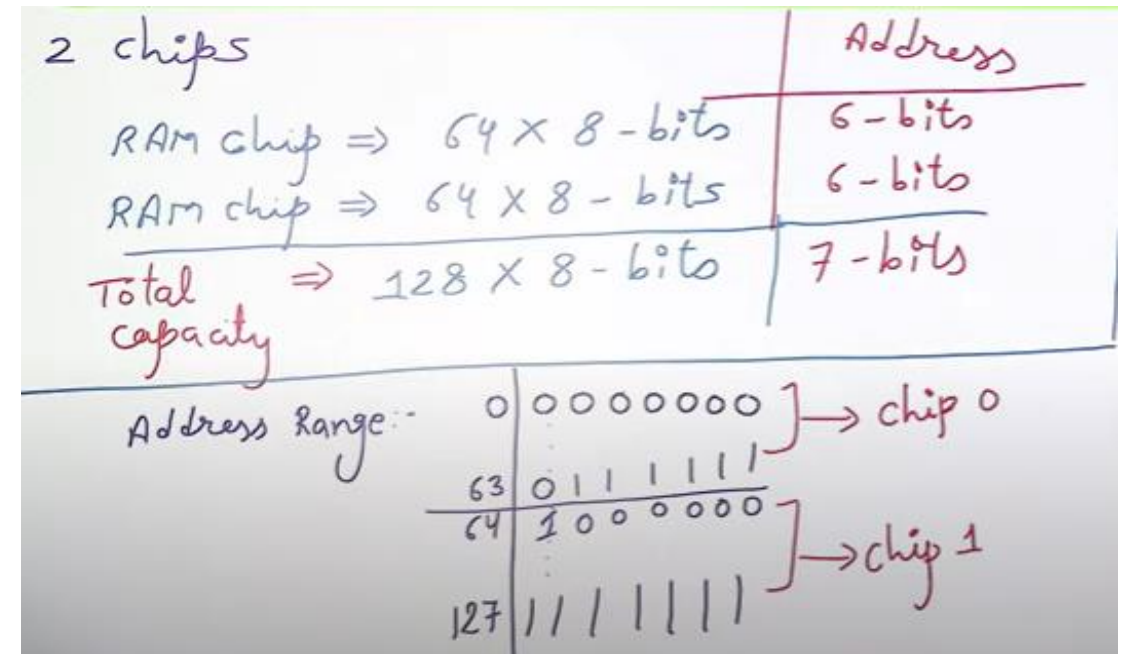 2 chips
Address
RAM chip ⇒ 64 X 8 - bits 6 - bits
RAM chip ⇒ 64 X 8 - bits 6 - bits
Total capacity ⇒ 128 X 8 - bits 7 - bits
Address Range:-
0 0 0 0 0 0 0 0 → chip 0
63 0 1 1 1 1 1 1
64 1 0 0 0 0 0 0 → chip 1
127 1 1 1 1 1 1 1